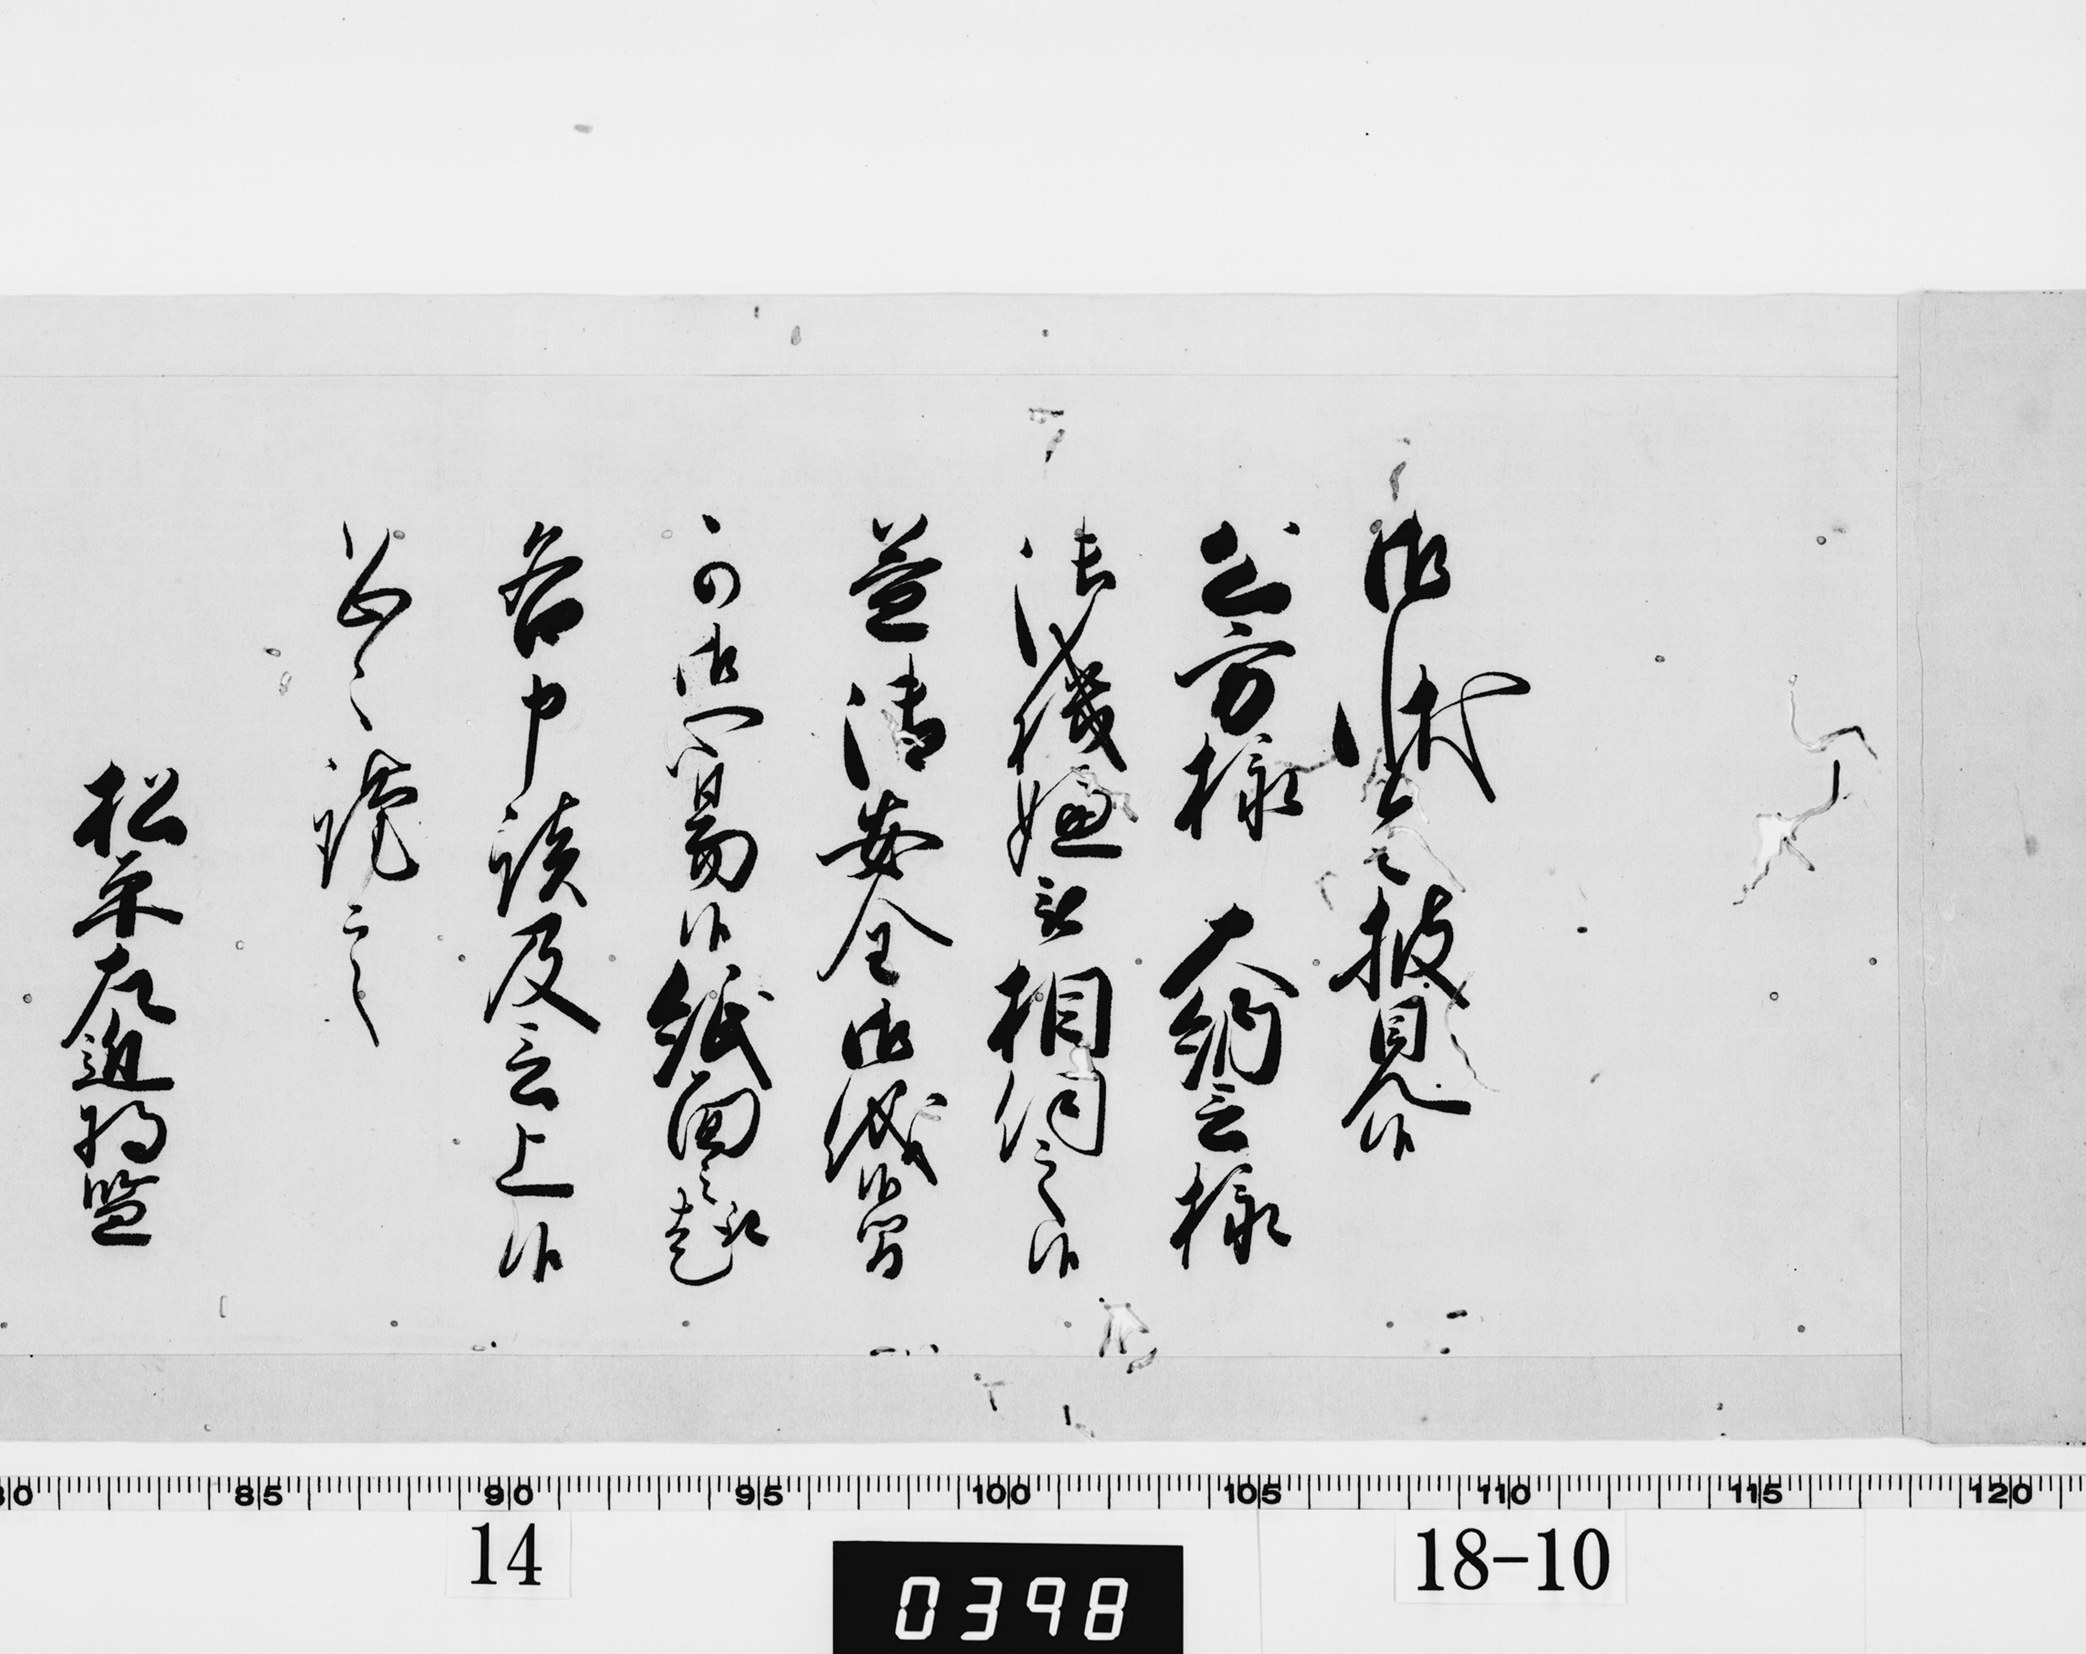 御状令披見候
公方様　大納言様
御機嫌被相伺之候
益御安全御儀候間
可御心易候紙面之趣
各申談及言上候
恐々謹言
松平左近将監
80 85 90 95 100 105 110 115 120
14
0398
18-10